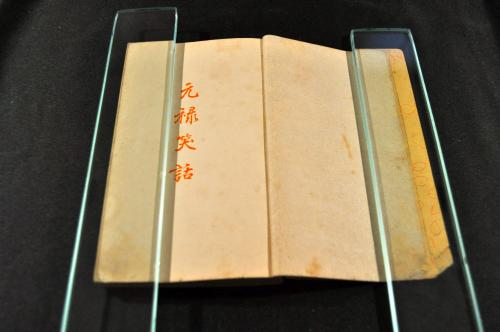 元禄笑話